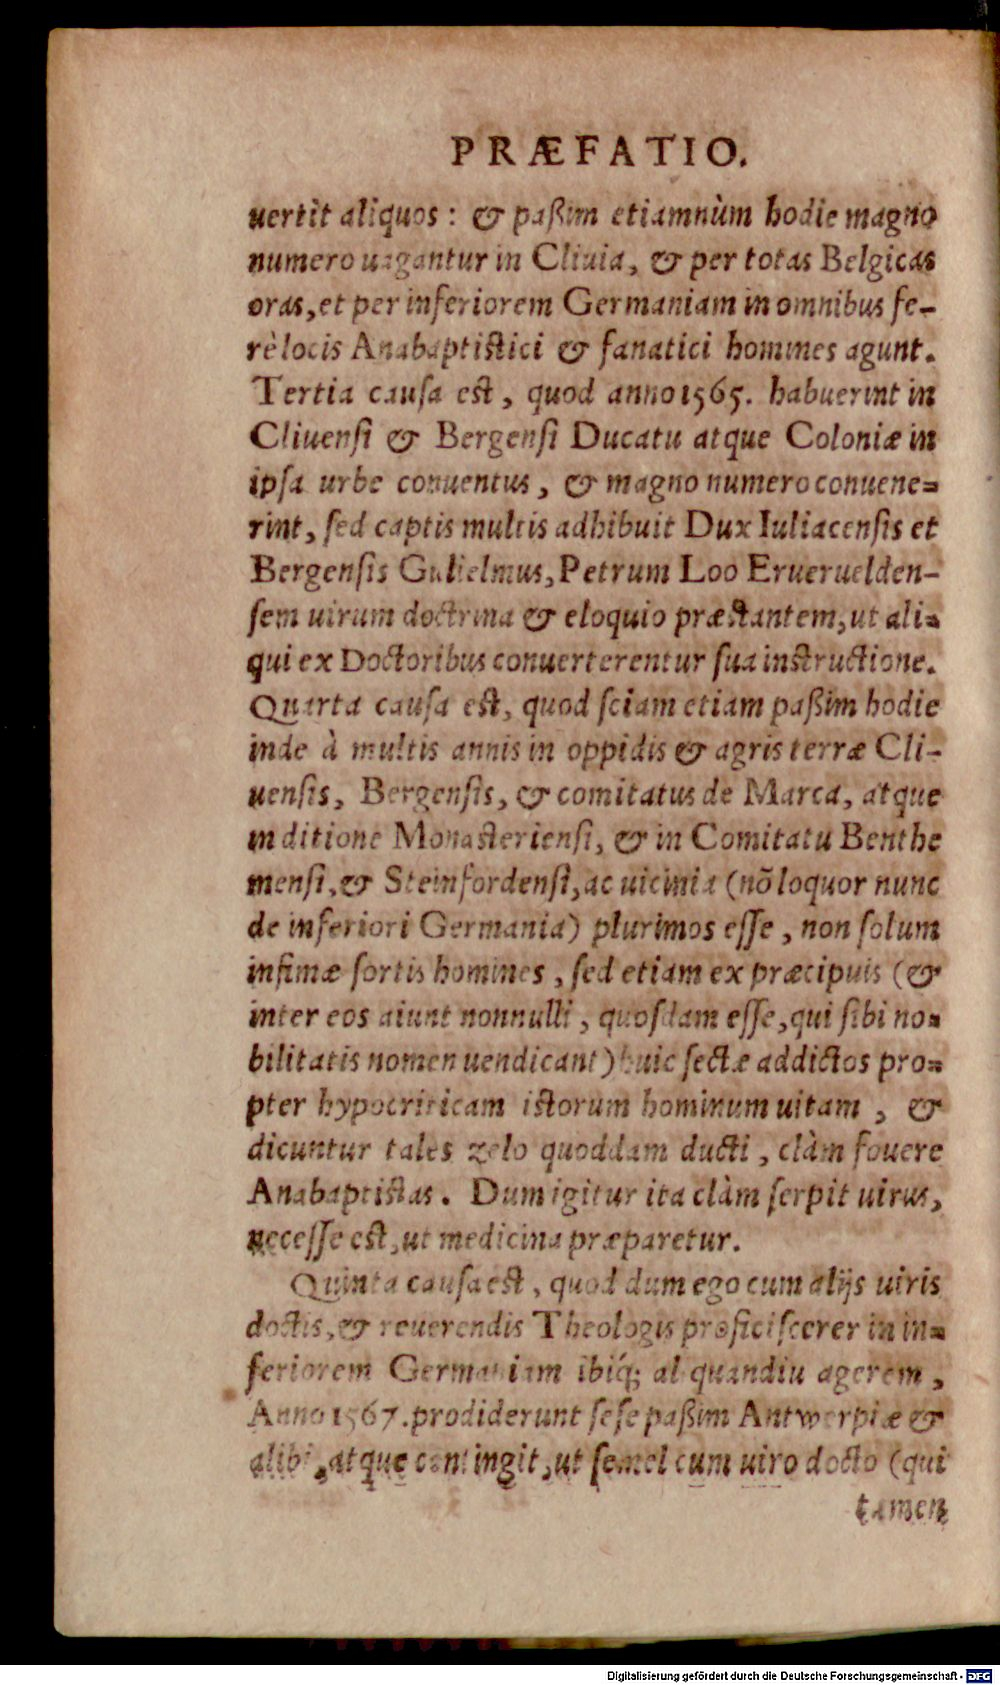 PRÆFATIO.
uertit aliquos: & paßim etiamnùm hodie magno
numero uagantur in Cliuia, & per totas Belgicas
oras, et per inferiorem Germaniam in omnibus fe-
rè locis Anabaptistici & fanatici homines agunt.
Tertia causa est, quod anno 1565. habuerint in
Cliuensi & Bergensi Ducatu atque Coloniæ in
ipsa urbe conuentus, & magno numero conuene-
rint, sed captis multis adhibuit Dux Iuliacensis et
Bergensis Gulielmus, Petrum Loo Erueruelden-
sem uirum doctrina & eloquio præstantem, ut ali-
qui ex Doctoribus conuerterentur sua instructione.
Quarta causa est, quod sciam etiam paßim hodie
inde à multis annis in oppidis & agris terræ Cli-
uensis, Bergensis, & comitatus de Marca, atque
in ditione Monasteriensi, & in Comitatu Benthe
mensi, & Steinfordensi, ac uicinia (nõ loquor nunc
de inferiori Germania) plurimos esse, non solum
infimæ sortis homines, sed etiam ex præcipuis (&
inter eos aiunt nonnulli, quosdam esse, qui sibi no-
bilitatis nomen uendicant) huic sectæ addictos pro-
pter hypocriticam istorum hominum uitam, &
dicuntur tales zelo quoddam ducti, clàm fouere
Anabaptistas. Dum igitur ita clàm serpit uirus,
necesse est, ut medicina præparetur.
Quinta causa est, quod dum ego cum alijs uiris
doctis, & reuerendis Theologis proficiscerer in in-
feriorem Germaniam ibiq́; aliquandiu agerem,
Anno 1567. prodiderunt sese paßim Antwerpiæ &
alibi, atque contingit, ut semel cum uiro docto (qui
tamen
Digitalisierung gefördert durch die Deutsche Forschungsgemeinschaft - DFG